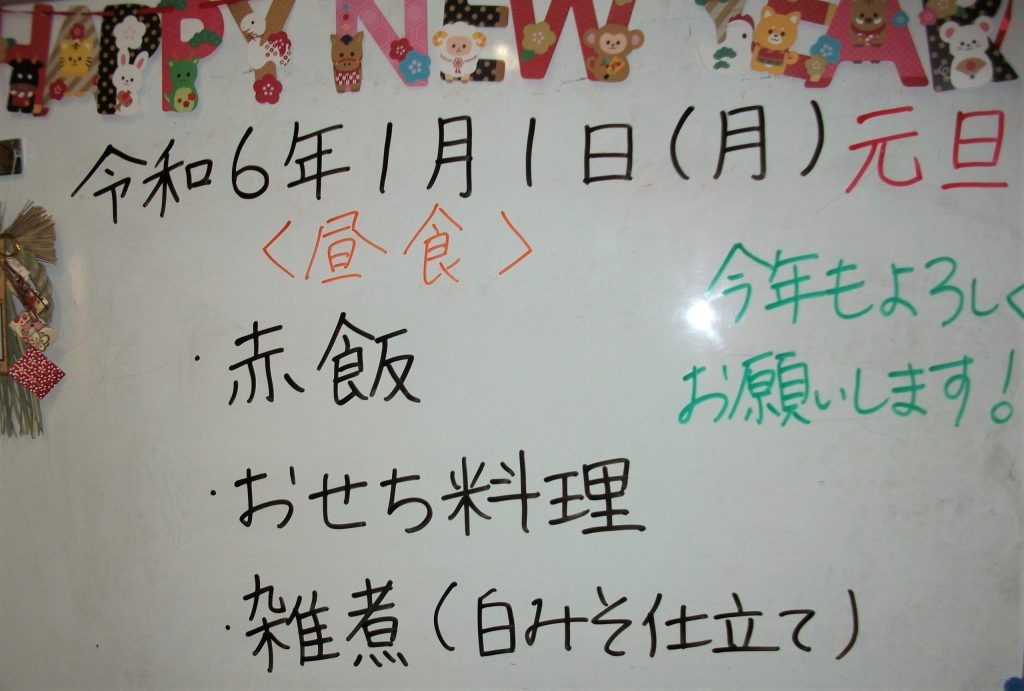 HAPPY NEW YEAR
令和6年1月1日(月)元旦
〈昼食〉
今年もよろしく
お願いします!
・赤飯
・おせち料理
・雑煮(白みそ仕立て)